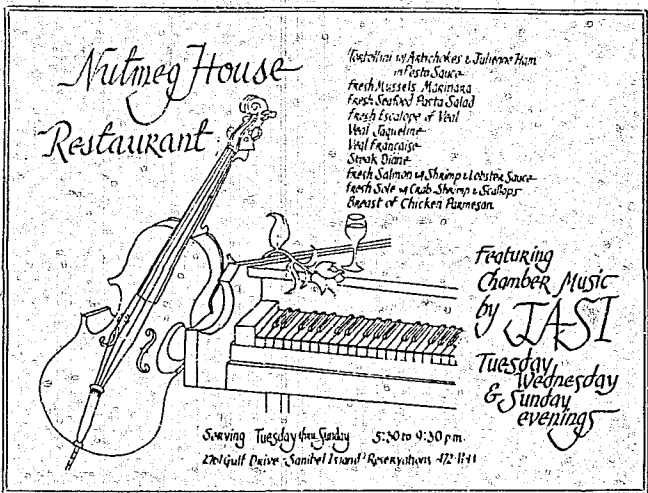 Nutmeg House
Restaurant
Tortollini w/ Artichokes & Julienne Ham
in Pesto Sauce
Fresh Mussels Marinara
Fresh Seafood Pasta Salad
Fresh Escalope of Veal
Veal Jaqueline
Veal Francaise
Steak Diane
Fresh Salmon w/ Shrimp & Lobster Sauce
Fresh Sole w/ Crab Shrimp & Scallops
Breast of Chicken Parmesan
Featuring
Chamber Music
by TASI
Tuesday
Wednesday
& Sunday
evenings
Serving Tuesday thru Sunday 5:30 to 9:30 pm.
2761 Gulf Drive Sanibel Island Reservations